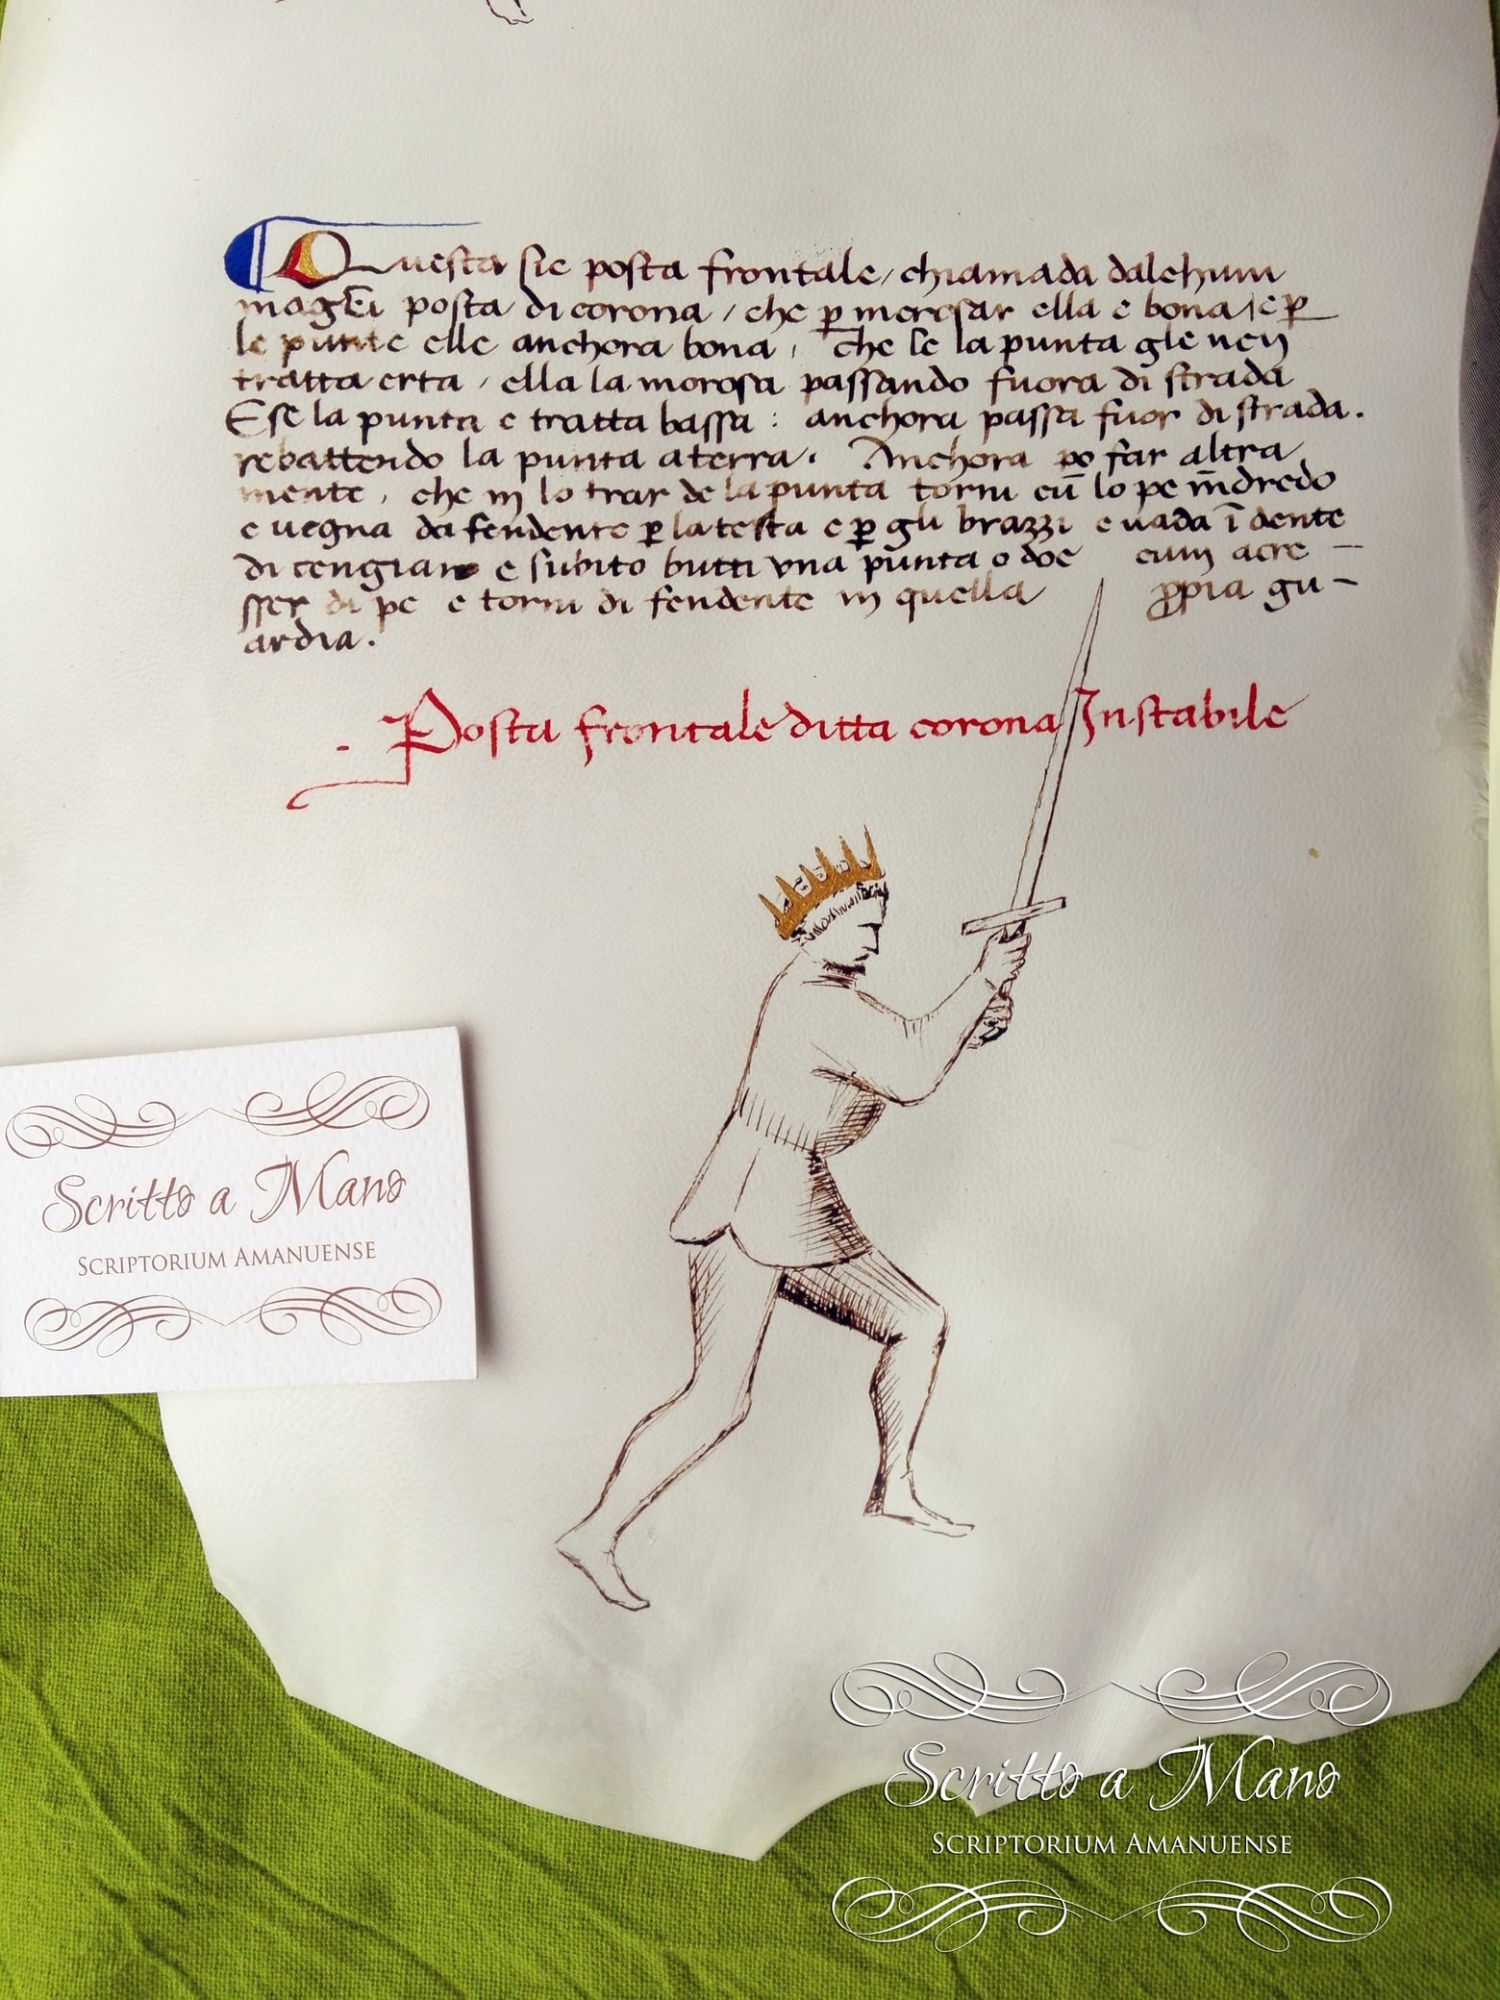 Questa sie posta frontale / chiamada dalchun
magistri posta di corona / che p̱ incrosar ella e bona / e p̱
le punte elle anchora bona, che se la punta gle ven
tratta erta / ella la incrosa passando fuora di strada
E se la punta e tratta bassa : anchora passa fuor di strada.
rebattendo la punta a terra. Anchora po far altra
mente, che in lo trar de la punta torni cū lo pe īndredo
e vegna da fendente p̱ la testa e p̱ gli brazzi e vada ī dente
di cengiaro e subito butti una punta o doe cum acre –
sser di pe e torni di fendente in quella p̱pia gu –
ardia.
- Posta frontale ditta corona Instabile
Scritto a Mano
Scriptorium Amanuense
Scritto a Mano
Scriptorium Amanuense